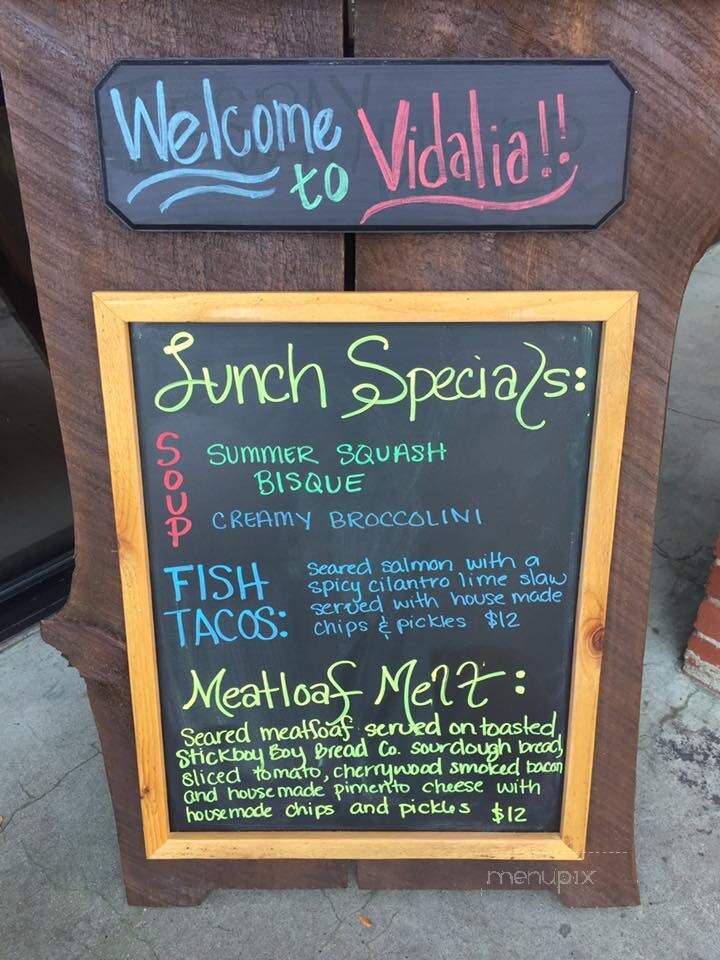 Welcome to Vidalia!!
Lunch Specials:
SOUP
SUMMER SQUASH
BISQUE
CREAMY BROCCOLINI
FISH
TACOS:
Seared salmon with a
spicy cilantro lime slaw
served with house made
chips & pickles $12
Meatloaf Melt:
Seared meatloaf served on toasted
Stickboy Boy Bread Co. sourdough bread,
sliced tomato, cherrywood smoked bacon
and house made pimento cheese with
housemade chips and pickles $12
menupix